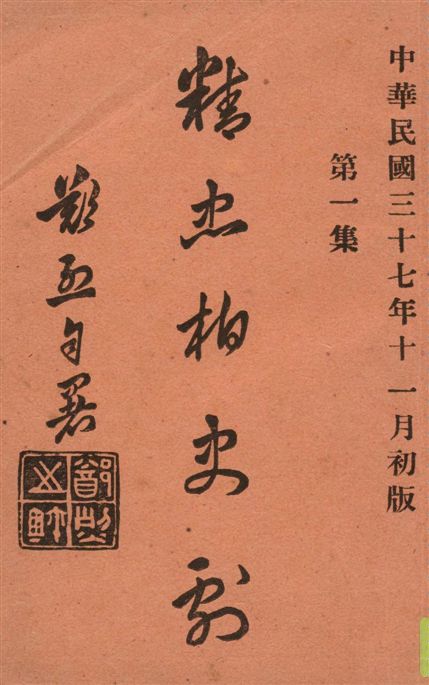 中華民國三十七年十一月初版
第一集
精忠柏史劇
鄭烈自署